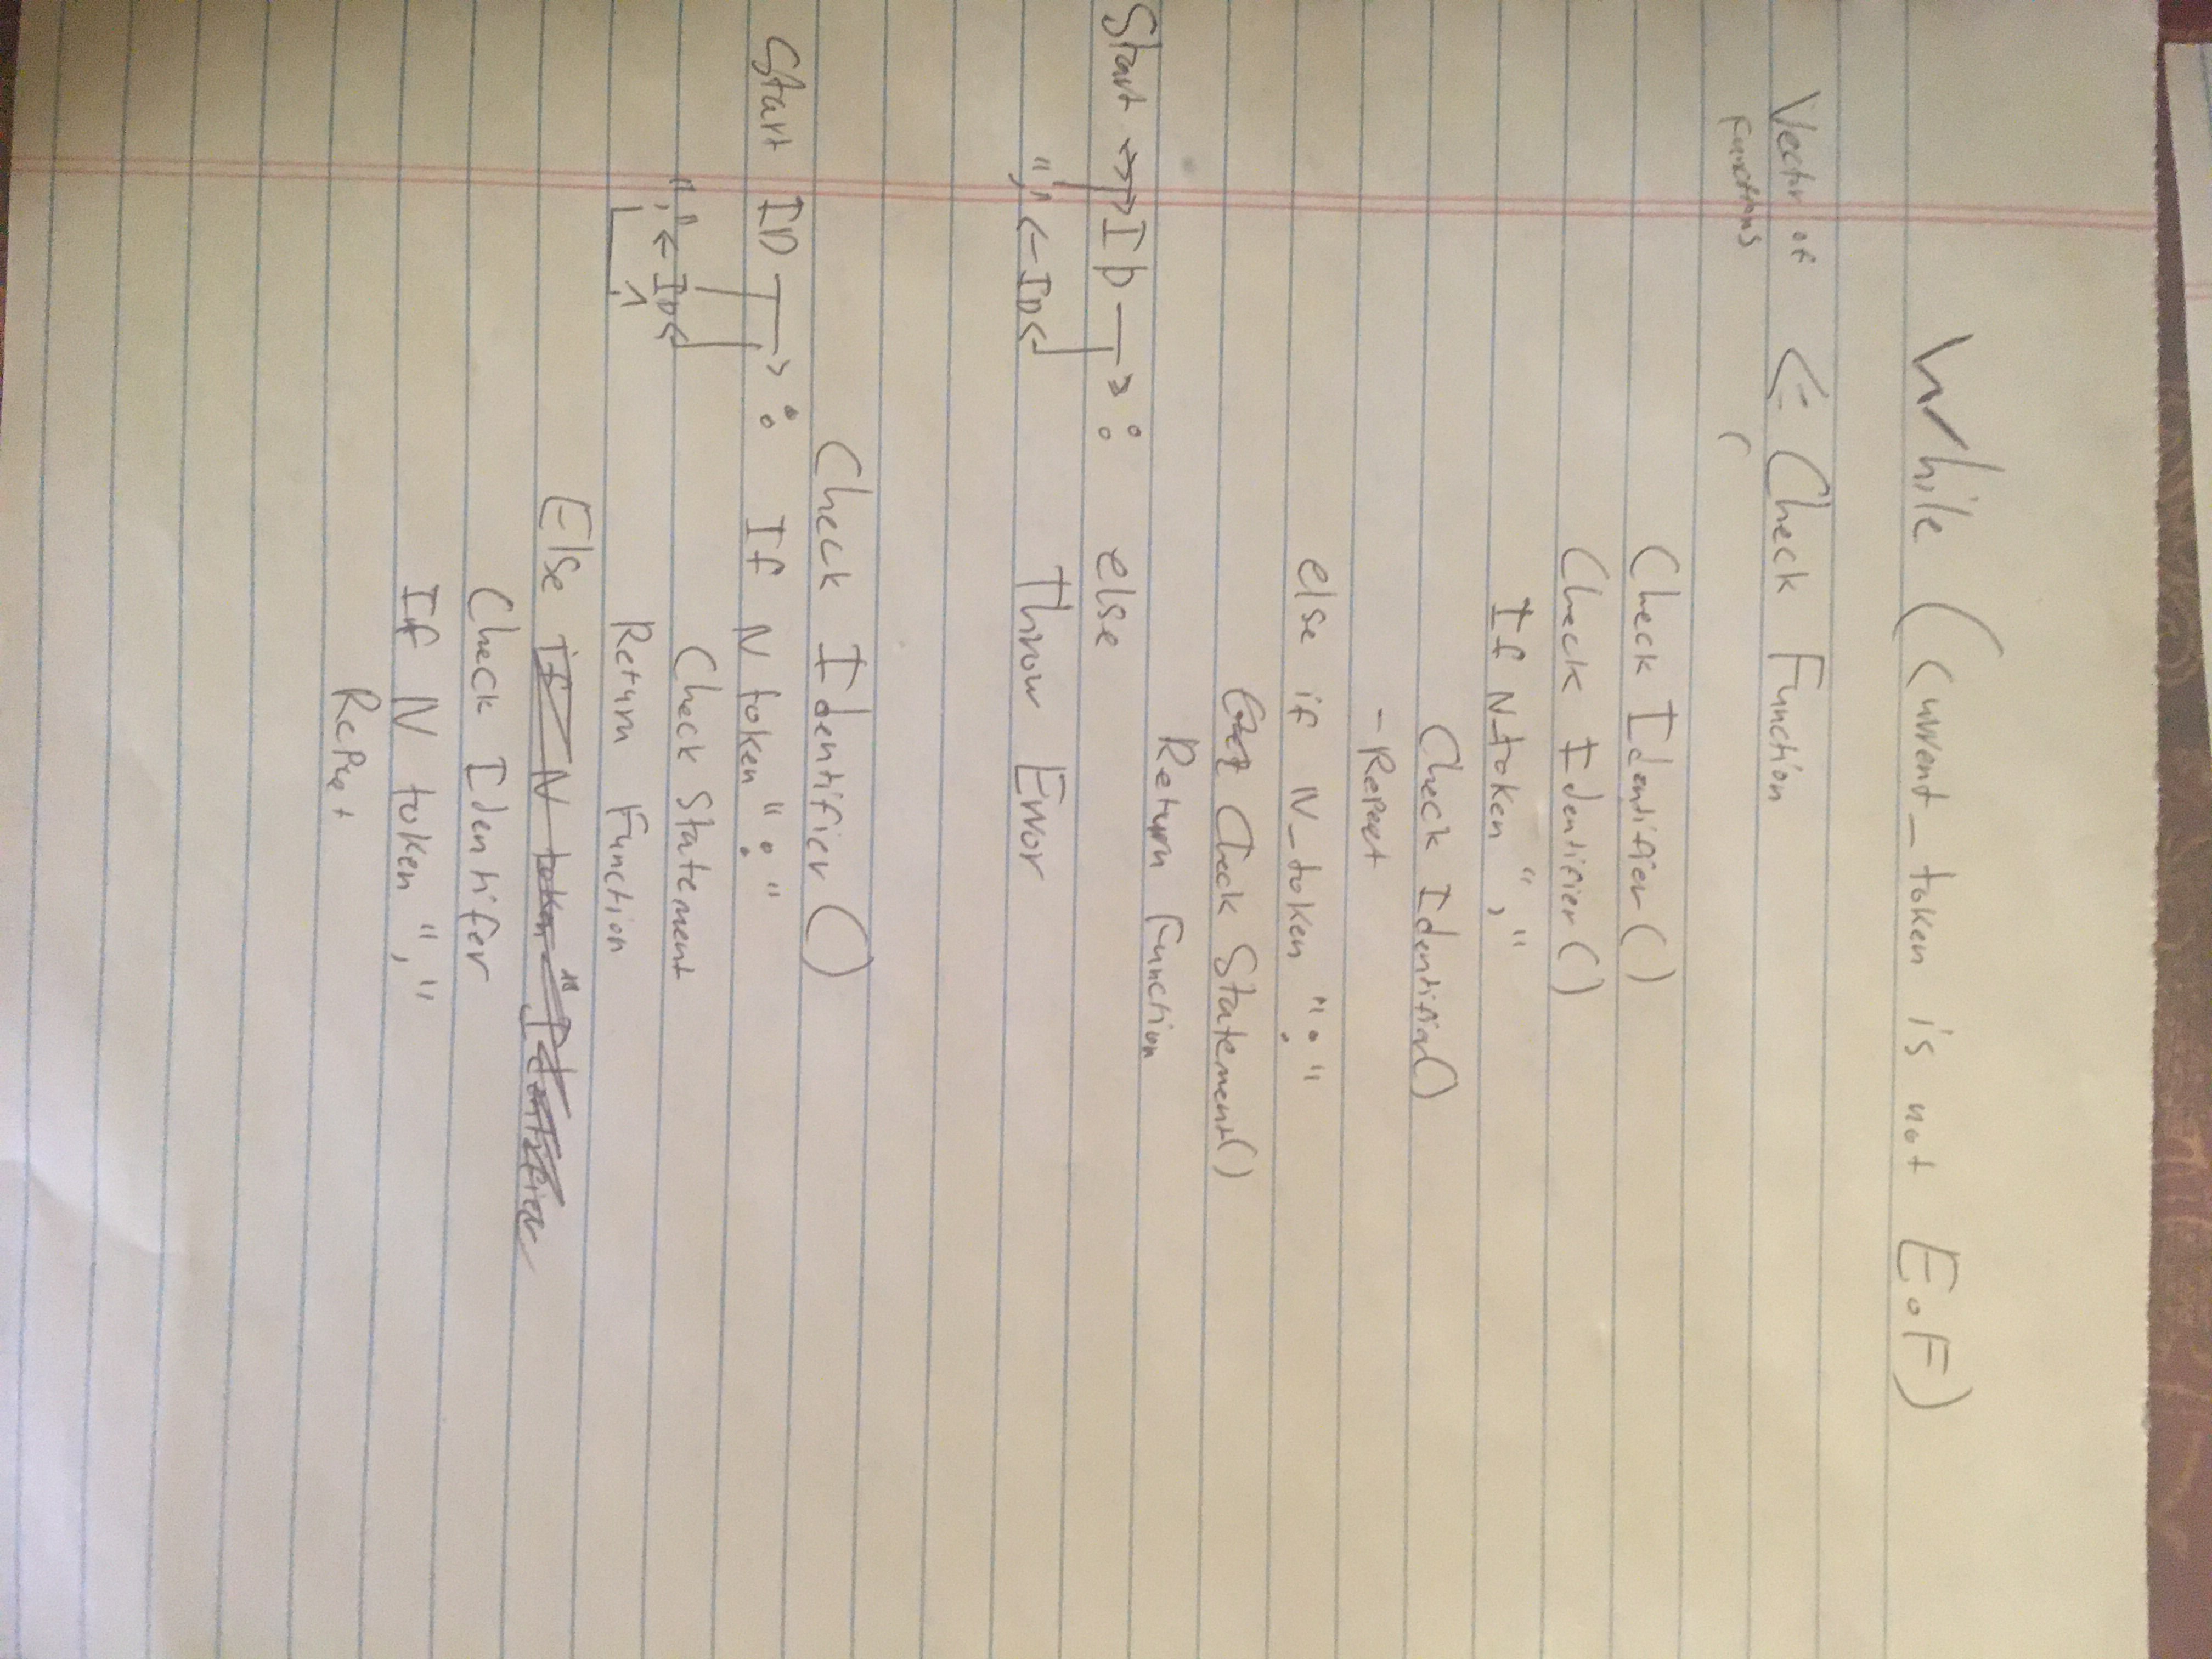 While (current_token is not E.O.F)
Vector of <= Check Function
Functions
Check Identifier()
Check Identifier()
If N_token ","
Check Identifier()
- Repeat
else if N_token ":"
Check Statement()
Return Function
Start → ID → : else
"," ← ID Throw Error
Check Identifier()
Start ID → : If N token ":"
"," ← ID Check Statement
Return Function
Else if N token "Identifier
Check Identifer
If N token ","
Repeat